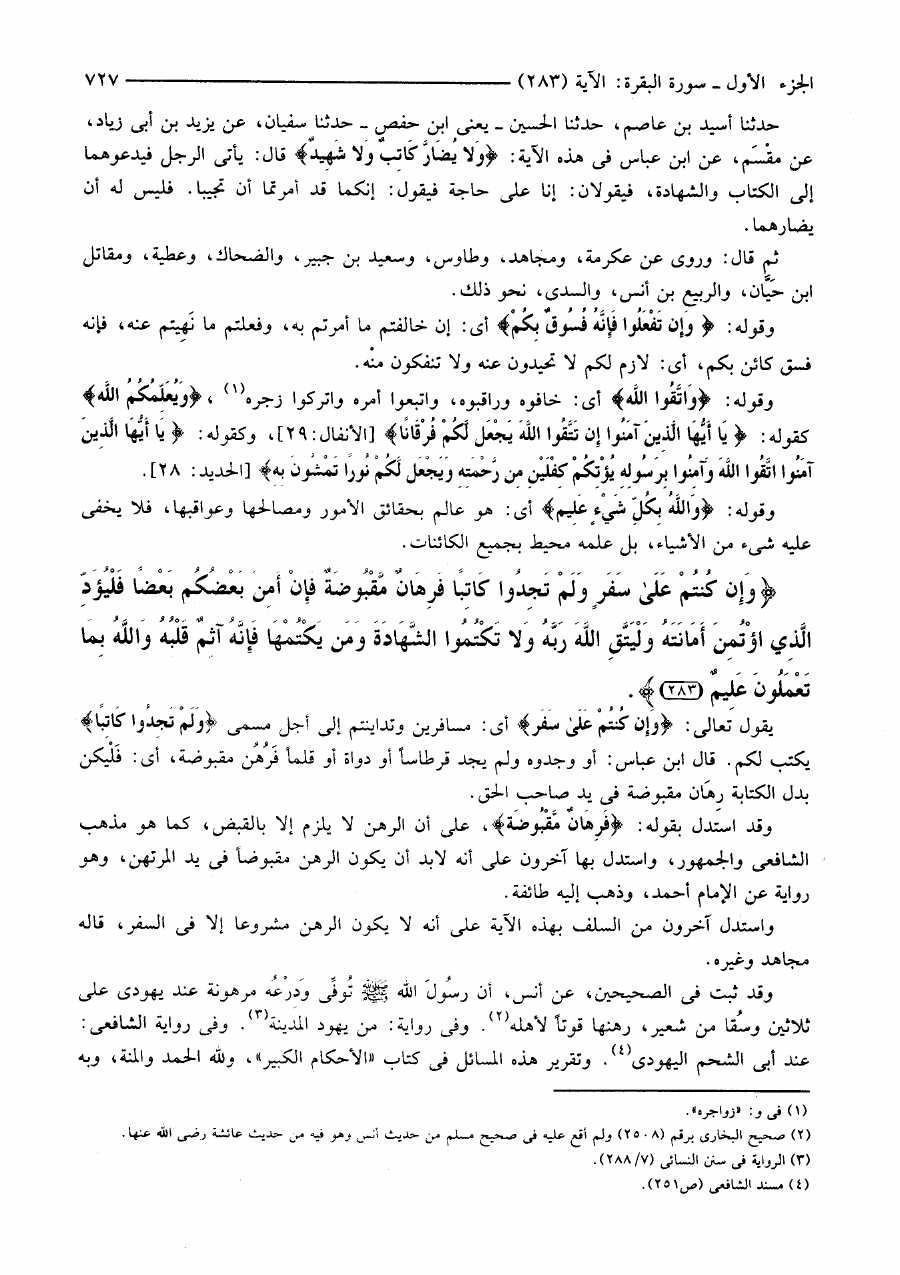 الجزء الأول ـ سورة البقرة: الآية (٢٨٣) ـــــــــــــــــــــــــــــــــــــــــــــ ٧٢٧
حدثنا أسيد بن عاصم، حدثنا الحسين ـ يعنى ابن حفص ـ حدثنا سفيان، عن يزيد بن أبى زياد،
عن مقْسَم، عن ابن عباس فى هذه الآية: ﴿وَلا يُضَارَّ كَاتِبٌ وَلا شَهِيدٌ﴾ قال: يأتى الرجل فيدعوهما
إلى الكتاب والشهادة، فيقولان: إنا على حاجة فيقول: إنكما قد أمرتما أن تجيبا. فليس له أن
يضارهما.
ثم قال: وروى عن عكرمة، ومجاهد، وطاوس، وسعيد بن جبير، والضحاك، وعطية، ومقاتل
ابن حَيَّان، والربيع بن أنس، والسدى، نحو ذلك.
وقوله: ﴿ وَإِن تَفْعَلُوا فَإِنَّهُ فُسُوقٌ بِكُمْ﴾ أى: إن خالفتم ما أمرتم به، وفعلتم ما نَهِيتم عنه، فإنه
فسق كائن بكم، أى: لازم لكم لا تحيدون عنه ولا تنفكون منْه.
وقوله: ﴿وَاتَّقُوا اللَّه﴾ أى: خافوه وراقبوه، واتبعوا أمره واتركوا زجره(١) ، ﴿وَيُعَلِّمُكُمُ اللَّه﴾
كقوله: ﴿ يَا أَيُّهَا الَّذِينَ آمَنُوا إِن تَتَّقُوا اللَّهَ يَجْعَل لَّكُمْ فُرْقَانًا﴾ [الأنفال:٢٩]، وكقوله: ﴿ يَا أَيُّهَا الَّذِينَ
آمَنُوا اتَّقُوا اللَّهَ وَآمِنُوا بِرَسُولِهِ يُؤْتِكُمْ كِفْلَيْنِ مِن رَّحْمَتِهِ وَيَجْعَل لَّكُمْ نُورًا تَمْشُونَ بِهِ﴾ [الحديد: ٢٨].
وقوله: ﴿وَاللَّهُ بِكُلِّ شَيْءٍ عَلِيم﴾ أى: هو عالم بحقائق الأمور ومصالحها وعواقبها، فلا يخفى
عليه شىء من الأشياء، بل علمه محيط بجميع الكائنات.
﴿وَإِن كُنتُمْ عَلَىٰ سَفَرٍ وَلَمْ تَجِدُوا كَاتِبًا فَرِهَانٌ مَّقْبُوضَةٌ فَإِنْ أَمِنَ بَعْضُكُم بَعْضًا فَلْيُؤَدِّ
الَّذِي اؤْتُمِنَ أَمَانَتَهُ وَلْيَتَّقِ اللَّهَ رَبَّهُ وَلا تَكْتُمُوا الشَّهَادَةَ وَمَن يَكْتُمْهَا فَإِنَّهُ آثِمٌ قَلْبُهُ وَاللَّهُ بِمَا
تَعْمَلُونَ عَلِيمٌ (٢٨٣)﴾.
يقول تعالى: ﴿وَإِن كُنتُمْ عَلَىٰ سَفَر﴾ أى: مسافرين وتداينتم إلى أجل مسمى ﴿وَلَمْ تَجِدُوا كَاتِبًا﴾
يكتب لكم. قال ابن عباس: أو وجدوه ولم يجد قرطاساً أو دواة أو قلماً فَرُهُن مقبوضة، أى: فَلْيكن
بدل الكتابة رِهَان مقبوضة فى يد صاحب الحق.
وقد استدل بقوله: ﴿فَرِهَانٌ مَّقْبُوضَة﴾، على أن الرهن لا يلزم إلا بالقبض، كما هو مذهب
الشافعى والجمهور، واستدل بها آخرون على أنه لابد أن يكون الرهن مقبوضاً فى يد المرتهن، وهو
رواية عن الإمام أحمد، وذهب إليه طائفة.
واستدل آخرون من السلف بهذه الآية على أنه لا يكون الرهن مشروعا إلا فى السفر، قاله
مجاهد وغيره.
وقد ثبت فى الصحيحين، عن أنس، أن رسُولَ الله ﷺ تُوفِّى وَدِرْعُه مرهونة عند يهودى على
ثلاثين وسُقا من شعير، رهنها قوتاً لأهله(٢). وفى رواية: من يهود المدينة(٣). وفى رواية الشافعى:
عند أبى الشحم اليهودى(٤). وتقرير هذه المسائل فى كتاب «الأحكام الكبير»، ولله الحمد والمنة، وبه
(١) فى و: «زواجره».
(٢) صحيح البخارى برقم (٢٥٠٨) ولم أقع عليه فى صحيح مسلم من حديث أنس وهو فيه من حديث عائشة رضى الله عنها.
(٣) الرواية فى سنن النسائى (٢٨٨/٧).
(٤) مسند الشافعى (ص٢٥١).